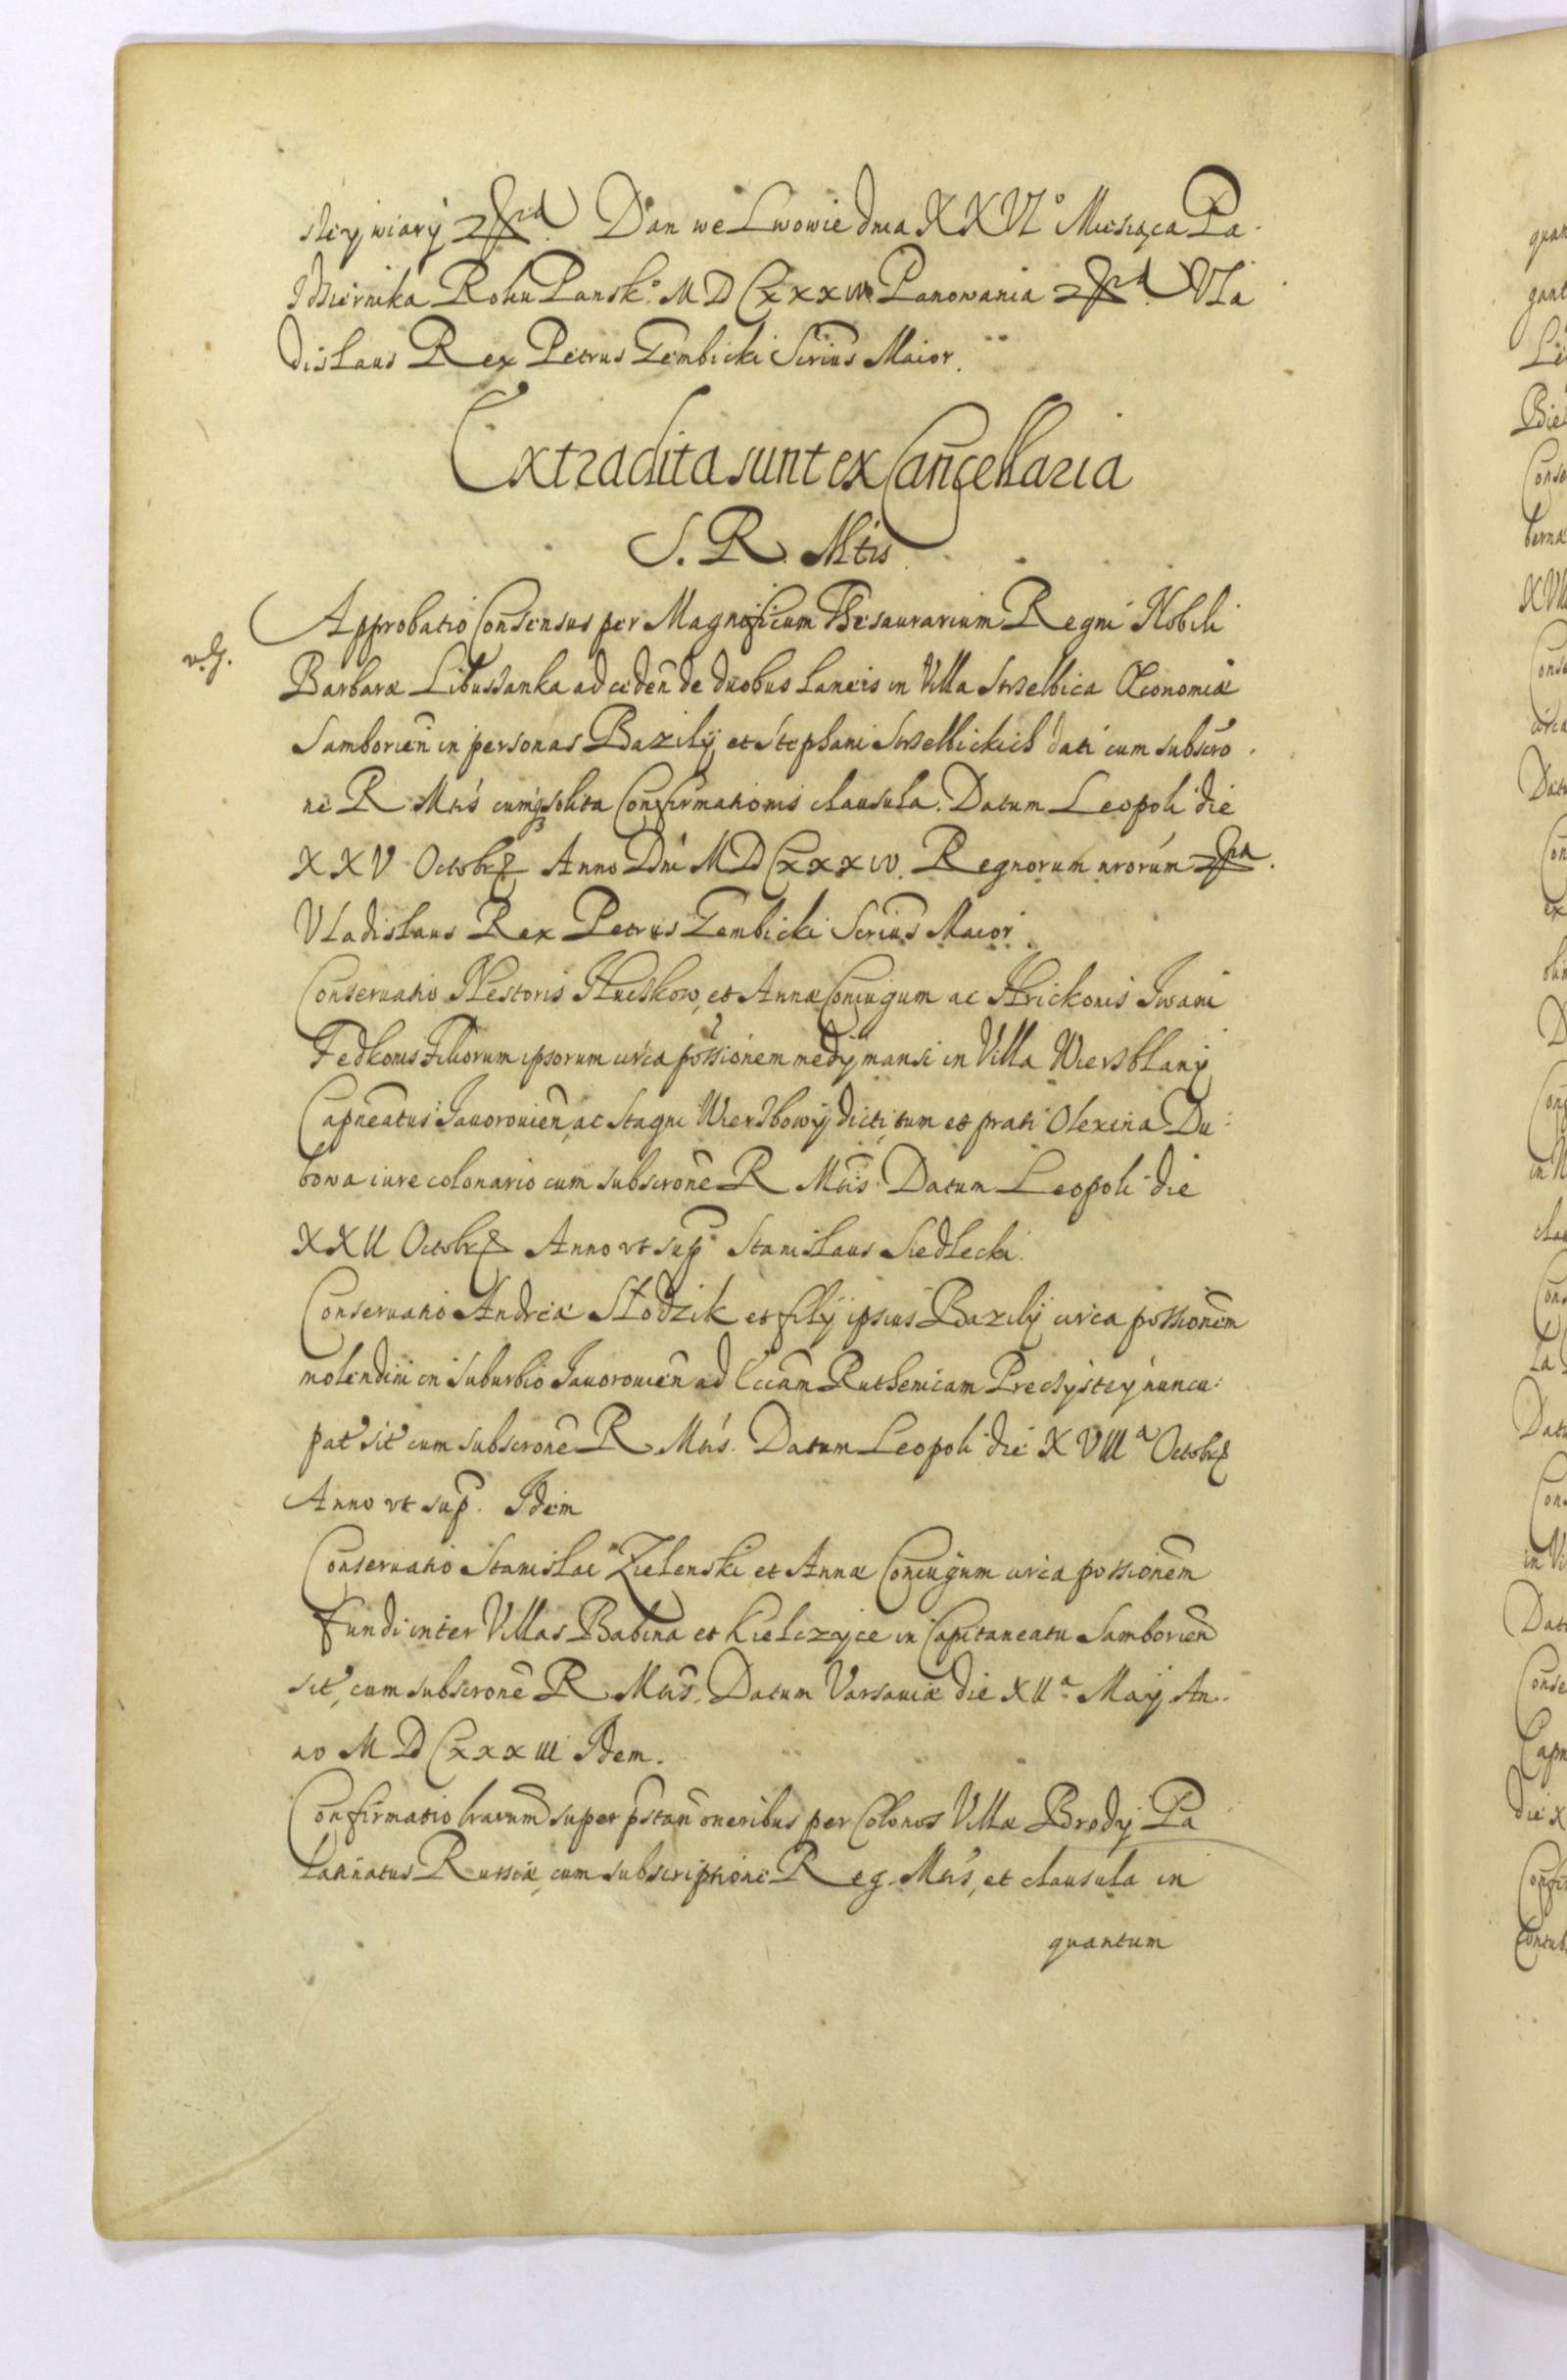 skey wiary Dan we Lwowie dnia XXVI° Miesiąca Pa
zdziernika Roku Pansk° MDCXXXIV Panowania Vla
dislaus Rex Petrus Gembicki Scrius Maior.
Extradita sunt ex Cancellaria
S. R. Mtis
Approbatio Consensus per Magnificum Thesaurarium Regni Nobili
Barbaræ Libussanka ad ceden de duobus Laneis in Villa Strzelbica Œconomiæ
Samborien in personas Bazilij et Stephani Strzelbickich dati cum subscro
ne R Mtis cumq solita Confirmationis clausula. Datum Leopoli die
XXV Octobr Anno Dni MDCXXXIV. Regnorum nrorum
Vladislaus Rex Petrus Gembicki Scrius Maior
Conseruatio Nestoris et Annæ Coniugum ac Hrickonis Iwani
Fedkonis Filiorum ipsorum circa possionem medij mansi in Villa Wierzblany
Capneatus Iauorouien, ac Stagni Wierzbowy dicti, tum et prati Olexina Du
bowa iure colonario cum subscrone R Mtis. Datum Leopoli die
XXII Octobr Anno vt sup Stanislaus Siedlecki.
Conseruatio Andreæ Słodzik et filij ipsius Bazilij circa possionem
molendini in suburbio Iauorouien ad Eccam Ruthenicam Preczystey nuncu
pat sit cum subscrone R Mtis. Datum Leopoli die XVIIIa Octobr
Anno vt sup. Idem
Conseruatio Stanislai Zielenski et Annæ Coniugum circa possionem
fundi inter Villas Babina et Kielczyce in Capitaneatu Samborien
sit, cum subscrone R Mtis. Datum Varsauiæ die XIIa Maij An
no MDCXXXIII Idem.
Confirmatio lrarum super pstan oneribus per Colonos Villæ Brody Pa
latinatus Russiæ, cum subscriptione Reg. Mtis, et clausula in
quantum